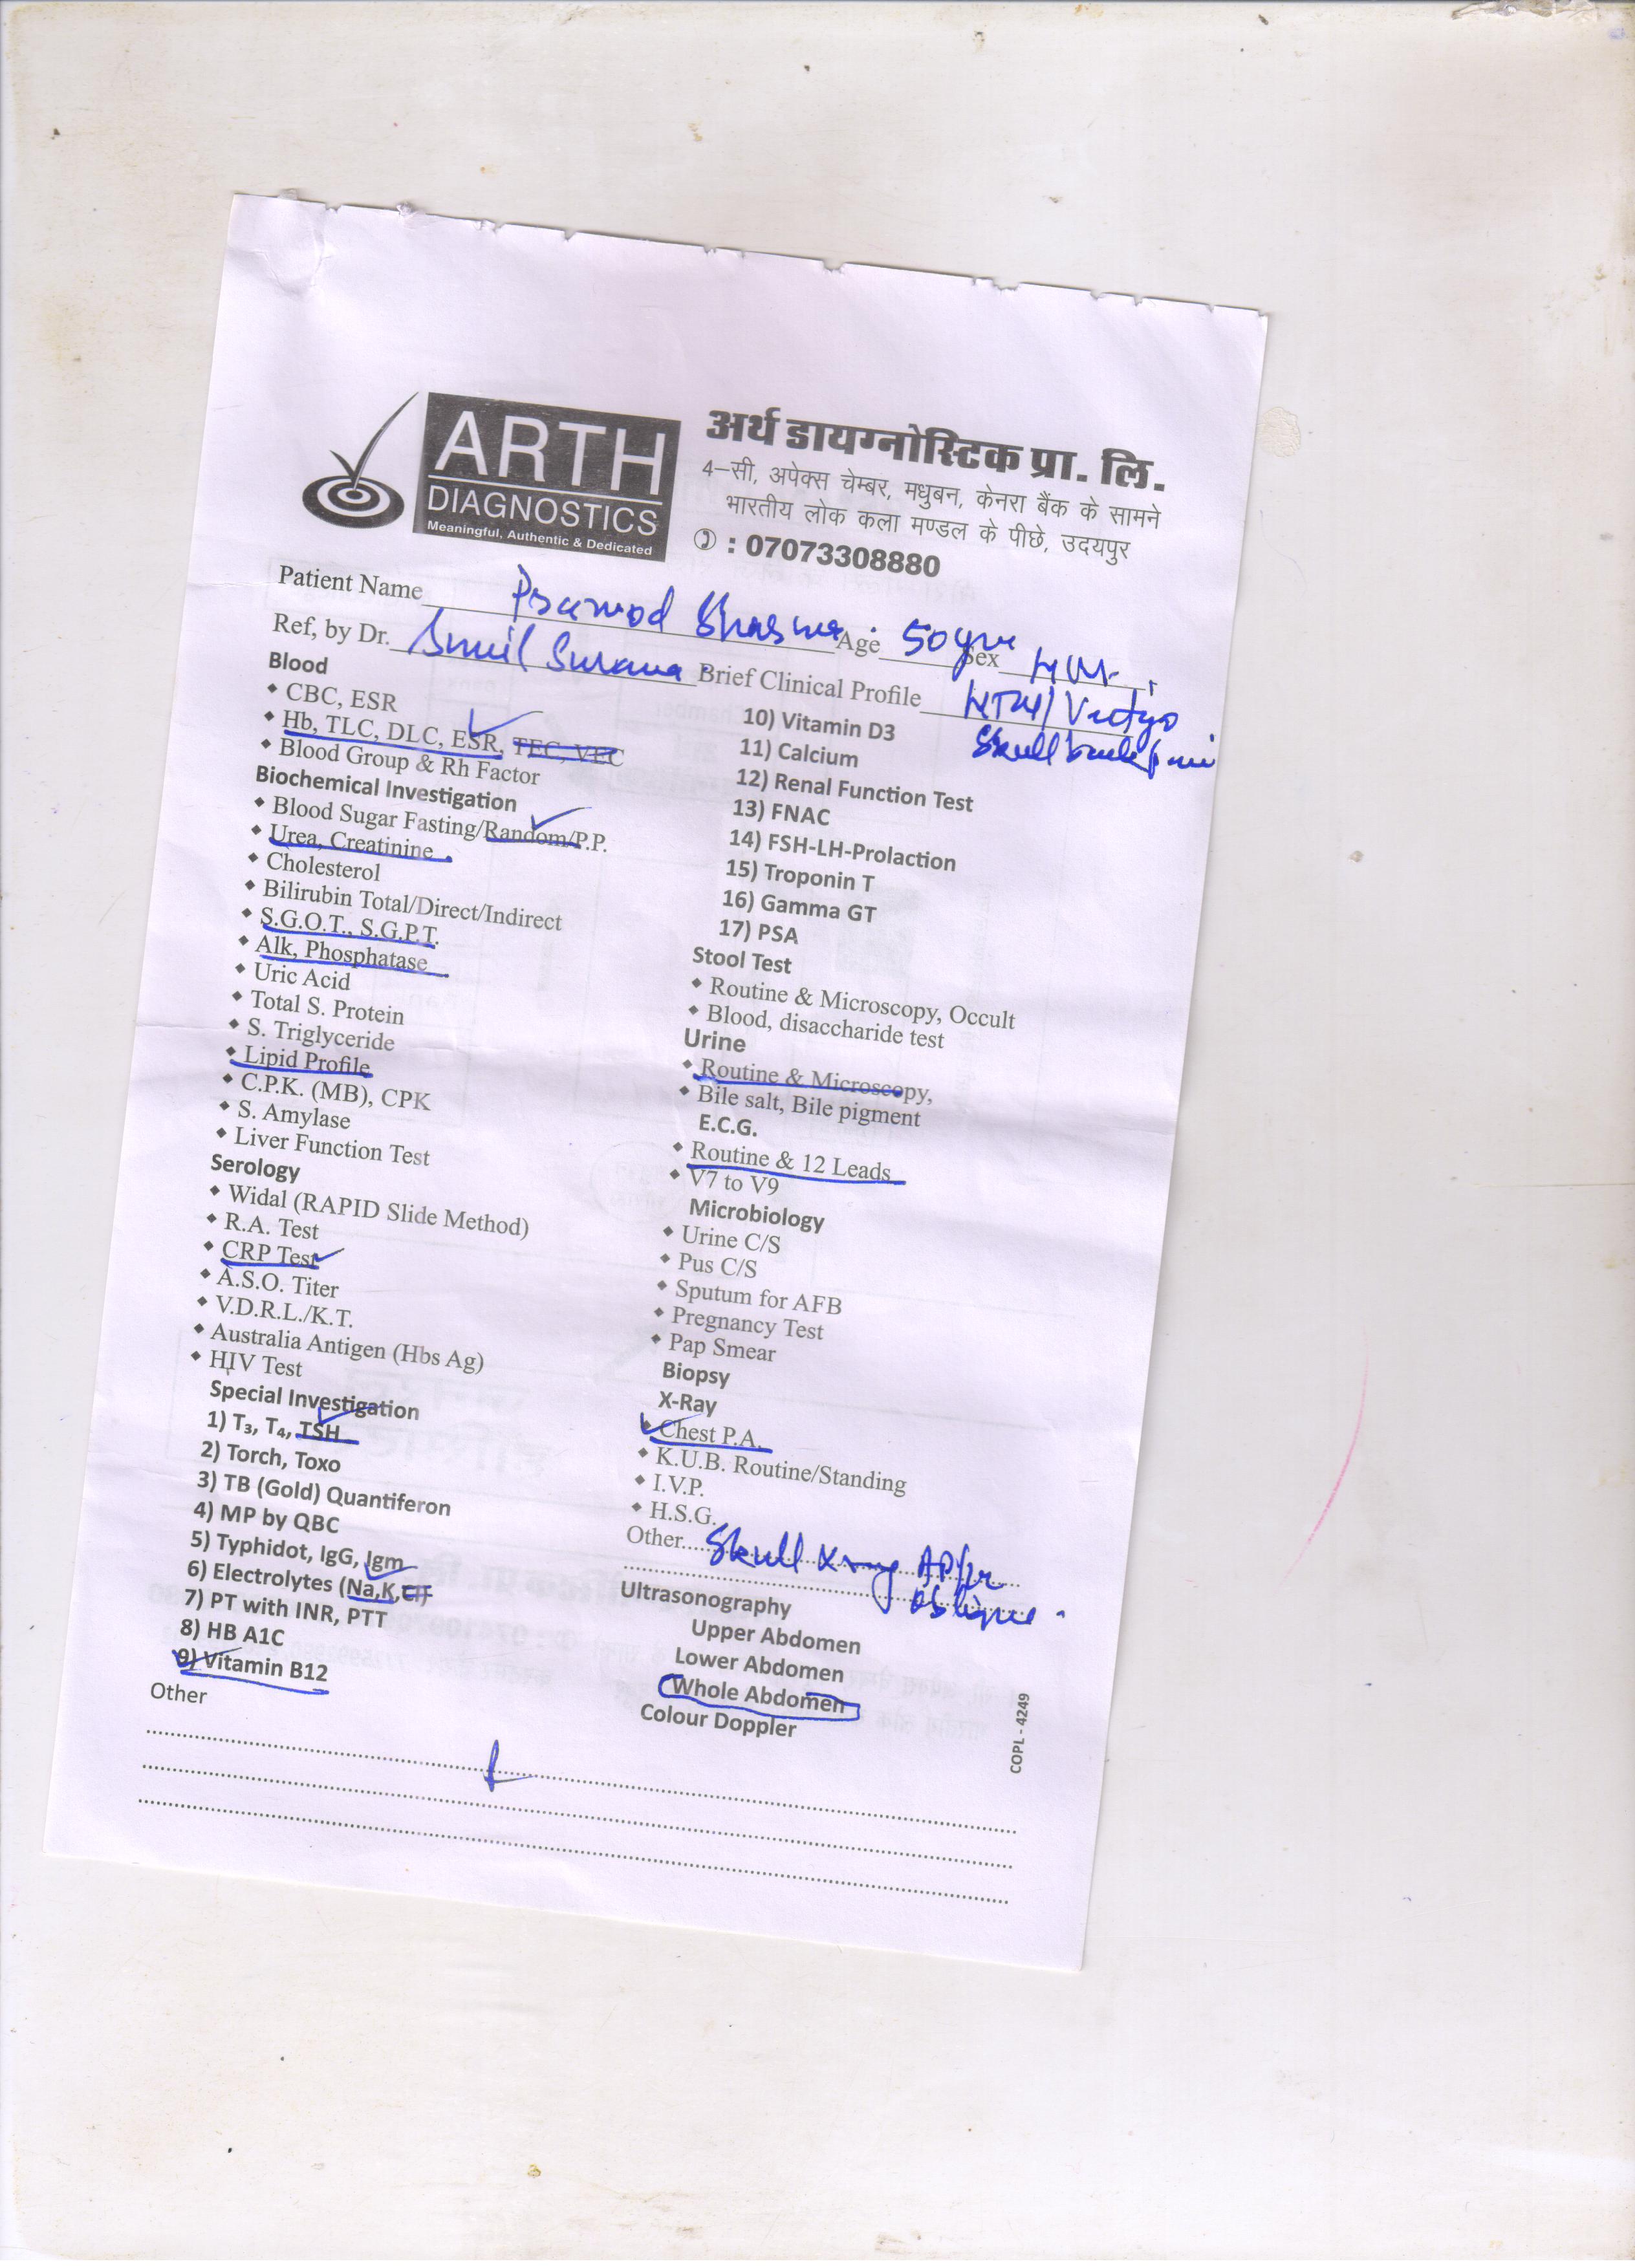 ARTH
DIAGNOSTICS
Meaningful, Authentic & Dedicated
अर्थ डायग्नोस्टिक प्रा. लि.
4-सी, अपेक्स चेम्बर, मधुबन, केनरा बैंक के सामने
भारतीय लोक कला मण्डल के पीछे, उदयपुर
: 07073308880
Patient Name Pramod Sharma Age 50 yr Sex
Ref, by Dr. Sunil Surana Brief Clinical Profile HTN/ Vertigo
Skull
Blood
CBC, ESR
Hb, TLC, DLC, ESR, TEC, VEC
Blood Group & Rh Factor
Biochemical Investigation
Blood Sugar Fasting/Random/P.P.
Urea, Creatinine
Cholesterol
Bilirubin Total/Direct/Indirect
S.G.O.T., S.G.P.T.
Alk, Phosphatase
Uric Acid
Total S. Protein
S. Triglyceride
Lipid Profile
C.P.K. (MB), CPK
S. Amylase
Liver Function Test
Serology
Widal (RAPID Slide Method)
R.A. Test
CRP Test
A.S.O. Titer
V.D.R.L./K.T.
Australia Antigen (Hbs Ag)
HIV Test
Special Investigation
1) T₃, T₄, TSH
2) Torch, Toxo
3) TB (Gold) Quantiferon
4) MP by QBC
5) Typhidot, IgG, Igm
6) Electrolytes (Na,K,Cl)
7) PT with INR, PTT
8) HB A1C
9) Vitamin B12
Other
10) Vitamin D3
11) Calcium
12) Renal Function Test
13) FNAC
14) FSH-LH-Prolaction
15) Troponin T
16) Gamma GT
17) PSA
Stool Test
Routine & Microscopy, Occult
Blood, disaccharide test
Urine
Routine & Microscopy,
Bile salt, Bile pigment
E.C.G.
Routine & 12 Leads
V7 to V9
Microbiology
Urine C/S
Pus C/S
Sputum for AFB
Pregnancy Test
Pap Smear
Biopsy
X-Ray
Chest P.A.
K.U.B. Routine/Standing
I.V.P.
H.S.G.
Other Skull Xray AP/
oblique
Ultrasonography
Upper Abdomen
Lower Abdomen
Whole Abdomen
Colour Doppler
COPL - 4249